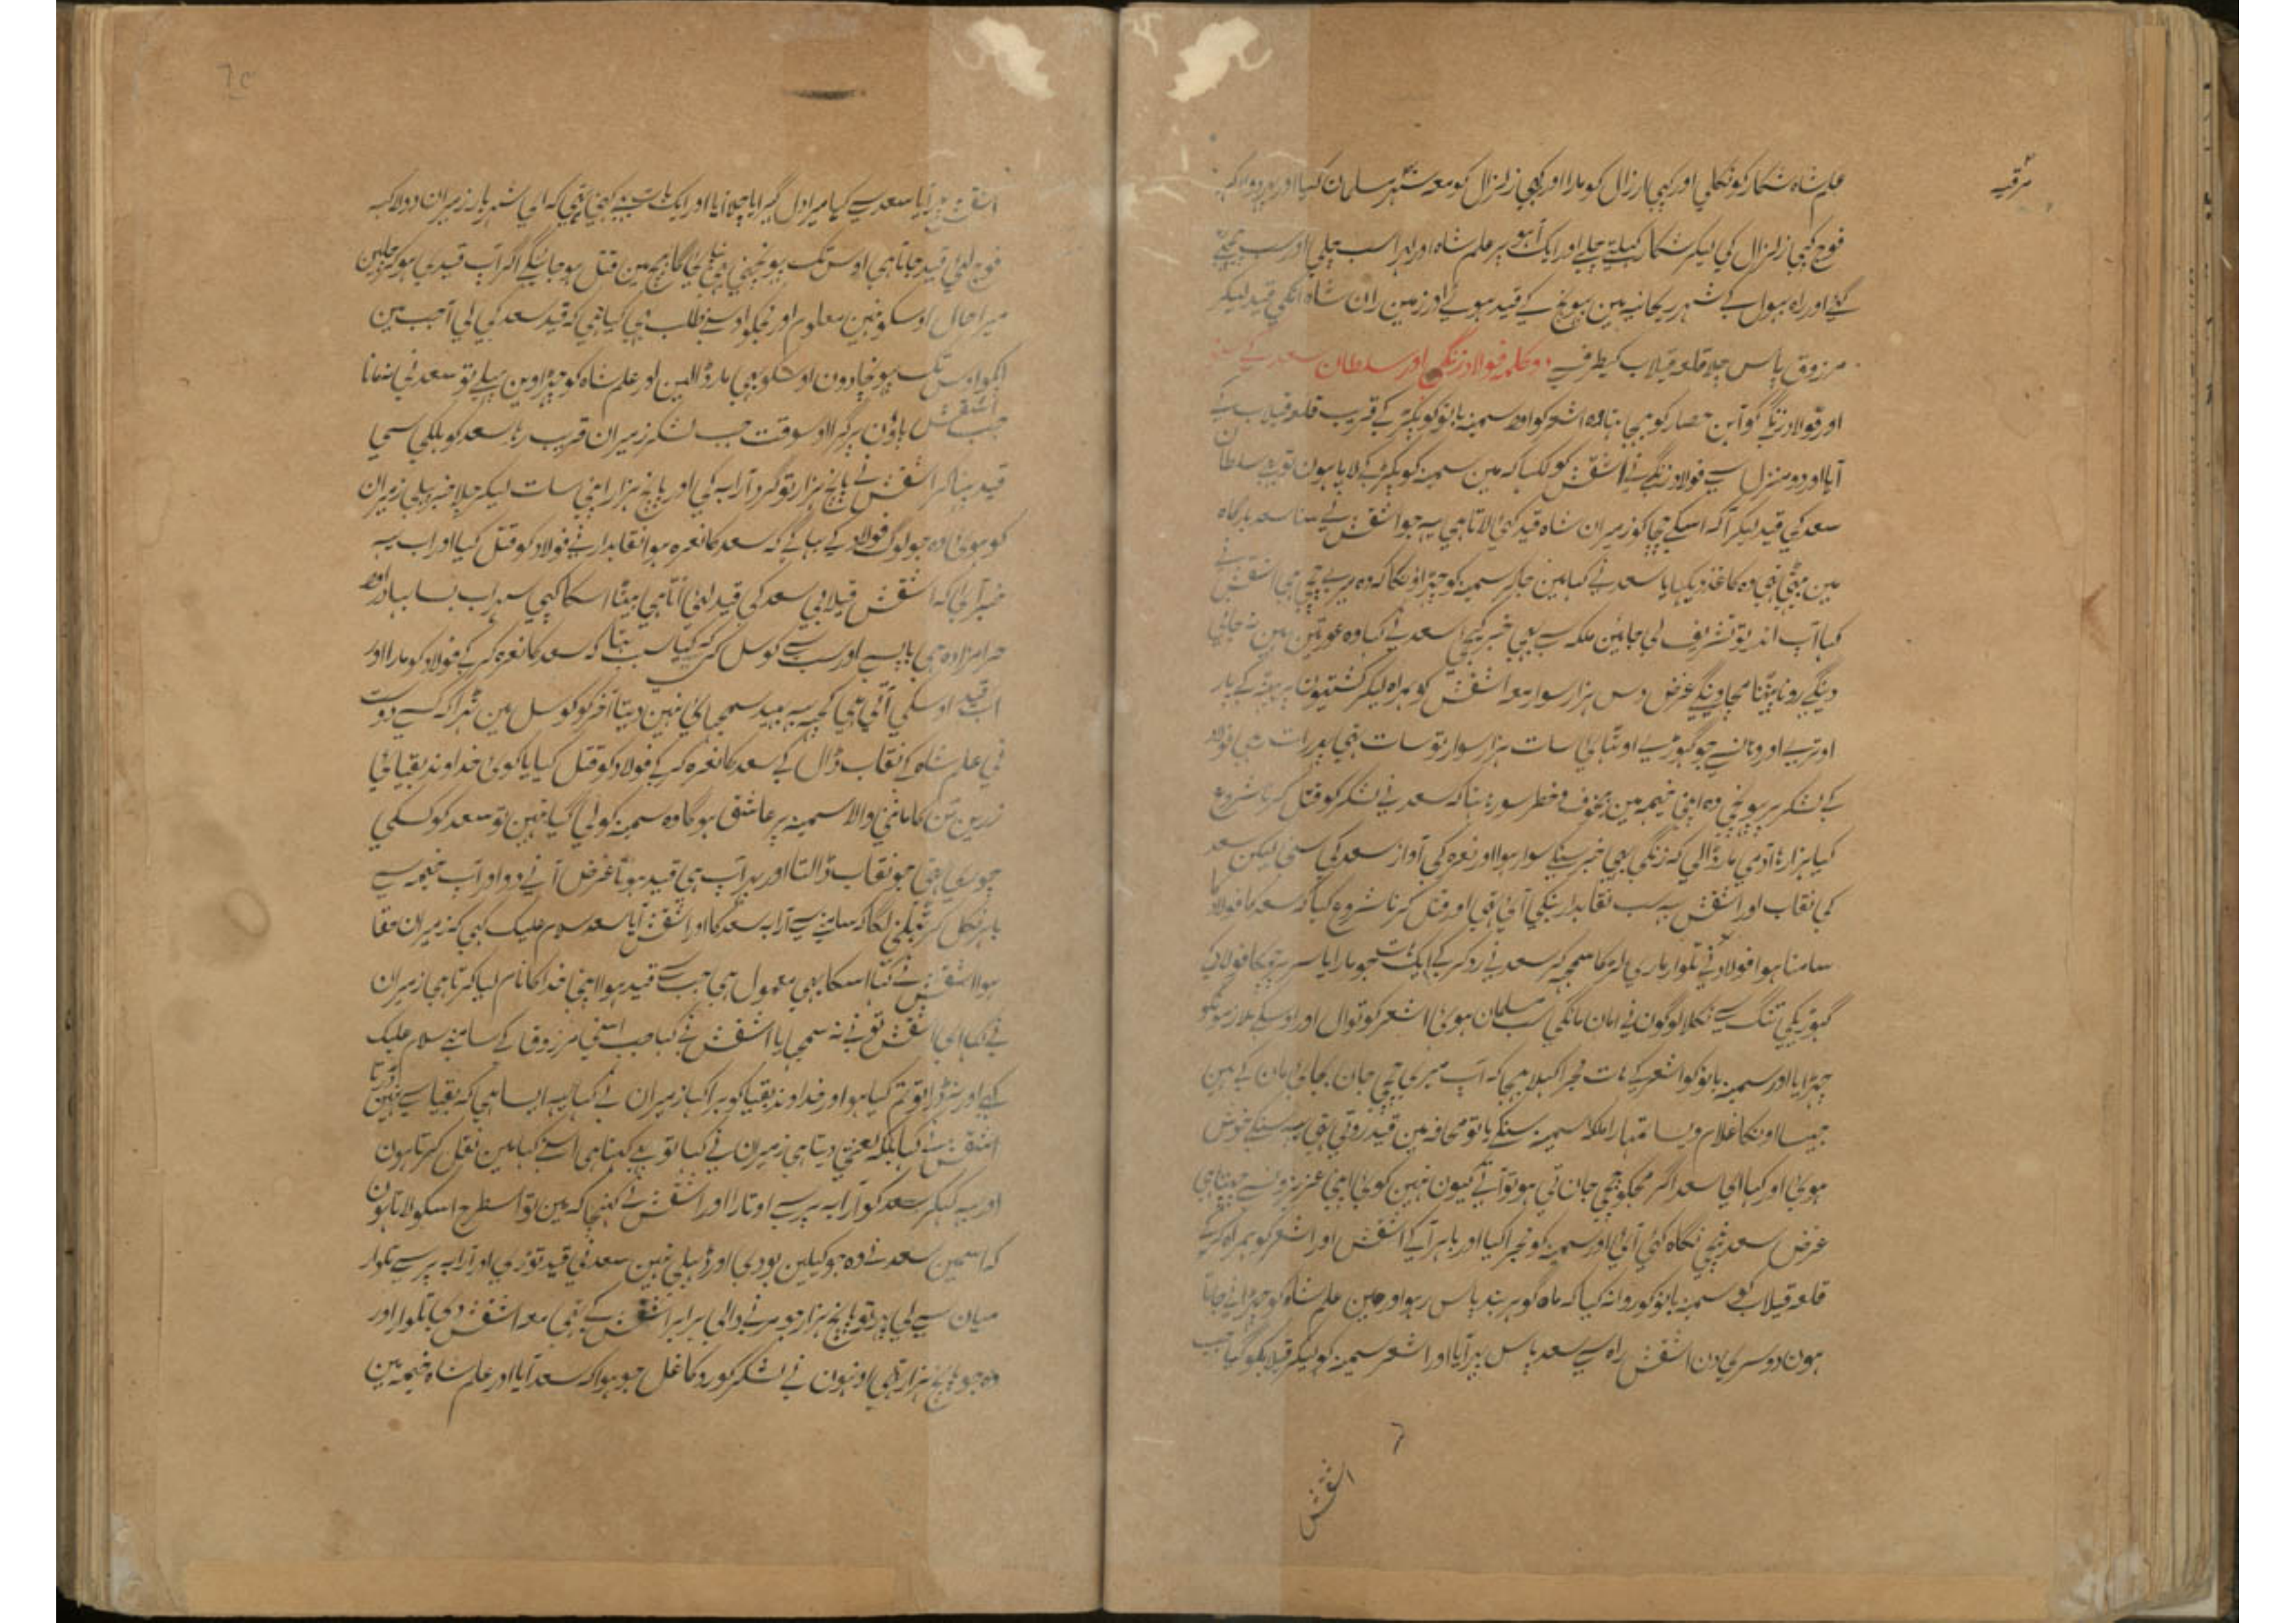 علم شاہ شکار کو نکلی اور کہی ارزال کو مارا اور کہی زلزال کو معہ شہر مسلمان کیا اور پہر دو لاکہہ
فوج کہی زلزال کی لیکر شکار کہیلتی چلے اور ایک آہو پر علم شاہ اور لہراسب چلی اور سب چہٹ
گئے اور راہ بہول کے شہر ریحانیہ مین پہونچ کے قید ہوئے اور زمین ران شاہ انکی قید لیکر
مرزوق پاس چلا قلعہ قیلاب کیطرف سے دو کلمہ فولاد زنگی اور سلطان سعد کے سنو
اور فولاد زنگے کو آبن حصار کو بہیجا تہا وہ اشعر کو اور سمینہ بانو کو پکڑ کے قریب قلعہ قیلاب کے
آیا اور دو منزل سے فولاد زنگے نے اشقش کو لکہا کہ مین سمینہ کو پکڑ کے لایا ہون تو بہی سلطان
سعد کی قید لیکر آ کہ اسکے چچا کو زمیران شاہ قید کئی لاتا ہی یہہ جو اشقش نے سنا سعد بارگاہ
مین بیٹہی تہی وہ کاغذ دیکہایا سعد نے کہا مین جاکر سمینہ کو چہڑاؤنگا کہ وہ میری چچی ہی اشقش نے
کہا آپ اندر تو تشریف لی جائین ملکہ سے بہی خبر کیجی سعد نے کہا وہ عورتین ہین نہ جانی
دینگے رونا پیٹنا مچاوینگے غرض دس ہزار سوار معہ اشقش کو ہمراہ لیکر کشتیون پر بیٹہہ کے پار
اوتری اور وہانسے جو گہوڑے اوٹہائی سات ہزار سوار تو سات تہی پہر رات تہی فولاد
کے لشکر پر پہونچی وہ اپنی خیمہ مین بیخوف و خطر سو رہا تہا کہ سعد نے لشکر کو قتل کرنا شروع
کیا ہزارہا آدمی مار ڈالی کہ زنگی بہی خبر سنکے سوار ہوا اور نعرہ کی آواز سعد کی سنی لیکن سعد
کی نقاب اور اشقش یہہ سب نقابدار بنکی آئی تہی اور قتل کرنا شروع کیا کہ سعد کا فولاد کا
سامنا ہوا فولاد نے تلوار ماری لڑکا سمجہہ کر سعد نے رد کر کے ایک ہاتہہ جو مارا یا سر پر چمکا فولاد کی
گہوڑیکی تنگ سے نکلا لوگون نے امان مانگی سب مسلمان ہوئی اشعر کوتوال اور اوسکے ملازمونکو
چہڑایا اور سمینہ بانو کو اشعر کے ہات مجرا کہلا بہیجا کہ آپ میری چچی جان بجائی مان کے ہین
جیسا اونکا غلام ویسا تمہارا ملکہ سمینہ سنکے بانو محافہ مین قید روتی تہی یہہ سنکے خوش
ہوئی اور کہا ای سعد اگر مجکو چچی جانتی ہو تو آتے کیون نہین کوئی اپنی عزیزونسے چہپتا ہی
غرض سعد نیچی نگاہ کئی آئی اور سمینہ کو مجرا کیا اور باہر آکے اشقش اور اشعر کو ہمراہ کر کے
قلعہ قیلاب کو سمینہ بانو کو روانہ کیا کہ ماہ گوہر بند پاس رہو اور مین علم شاہ کو چہڑانے جاتا
ہون دوسری دن اشقش راہ سے سعد پاس پہر آیا اور اشعر سمینہ کو لیکر قیلابکو گیا جب
اشقش
اشقش پہر آیا سعد سے کہا میرا دل گہبرایا چلا آیا اور ایک بات بہی کہنی تہی کہ ای شہریار زمیران دو لاکہہ
فوج لئی قید جاتا ہی اوس تک پہونچنی بہی نپائیگا بیچ مین قتل ہو جائینگے اگر آپ قیدی ہو کر چلین
میرا حال اوسکو نہین معلوم اور مجکو اوسنے طلب بہی کیا ہی کہ قید سعد کی لی آ جب مین
آپکو اوس تک پہونچا دون اوسکو بہی مار ڈالین اور علم شاہ کو چہڑاوین پہلے تو سعد نی نمانا
جب اشقش پاؤن پر گرا اوسوقت جب لشکر زمیران قریب رہا سعد کو ہلکی سی
قید پنہا کر اشقش نے پانچ ہزار تو گرد آرابہ کی اور پانچ ہزار اپنی سات لیکر چلا خبر پہلی زمیران
کو ہوئی وہ جو لوگ فولاد کے بہاگے کہ سعد کا نعرہ ہوا نقابدار نے فولاد کو قتل کیا اور اب یہہ
خبر آئی کہ اشقش قیلابی سعد کی قید لئی آتا ہی بیٹا اسکا کہی سہراب بسا بہادر اور
حرامزادہ ہی باپ سے اور سب سے کونسل کی کہ کیا سبب تہا کہ سعد کا نعرہ کر کے فولاد کو مارا اور
اب قید اوسکی آتی ہی کچہہ یہہ بہید سمجہائی نہین دیتا آخر کو کونسل مین ٹہرا کہ کسے دوست
نی علم شاہ کے نقاب ڈال کے سعد کا نعرہ کر کے فولاد کو قتل کیا یا کوئی خداوند بقیائی
زرین تن کا ماننی والا سمینہ پر عاشق ہوگا وہ سمینہ کو لی گیا نہین تو سعد کو کسکی
چوری تہی جو نقاب ڈالتا اور پہر آپ ہی قید ہوتا غرض آنے دو اور آپ خیمہ سے
باہر نکل کر ٹہلنی لگا کہ سامنے سے آرابہ سعد کا اور اشقش آیا سعد سلام علیک کہی کہ زمیران خفا
ہوا اشقش نے کہا اسکا یہی معمول ہی جب سے قید ہوا اپنی خدا کا نام لیا کرتا ہی زمیران
نے کہا ای اشقش تو نے نہ سمجہایا اشقش نے کہا جب اسنی مرزوق کے سامنے سلام علیک
کہی اور نہ ڈرا تو تم کیا ہو اور خداوند بقیا کو برا کہا زمیران نے کہا یہہ ایسا ہی کہ بقیا سے نہین ڈرتا
اشقش نے کہا بلکہ لعنتی دیتا ہی زمیران نے کہا تو بہی کہتا ہی اسنے کہا مین نقل کرتا ہون
اور یہہ کہکر سعد کو آرابہ پر سے اوتارا اور اشقش نے کہنچا کہ مین تو اسطرح اسکو لاتا ہون
کہ اسمین سعد نے وہ جو کیلین بودی اور ڈہیلی تہین سعد نی قید توڑی اور آرابہ پر سے تلوار
میان سے لی پہر تو پانچ ہزار جو مرنے والی برابر اشقش کے تہی معہ اشقش دی تلوار اور
وہ جو پانچ ہزار تہی اونہون نے لشکر کو روکا غل جو ہوا کہ سعد آیا اور علم شاہ خیمہ مین